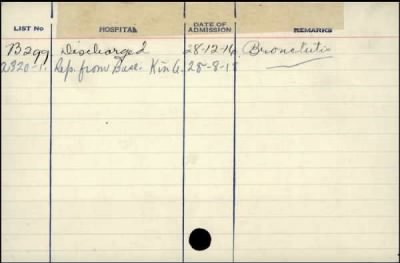 LIST No HOSPITAL DATE OF ADMISSION REMARKS
B299 Discharged 28-12-16 Bronchitis
2820-1. Rep. from Base. Kin G. 28-8-18